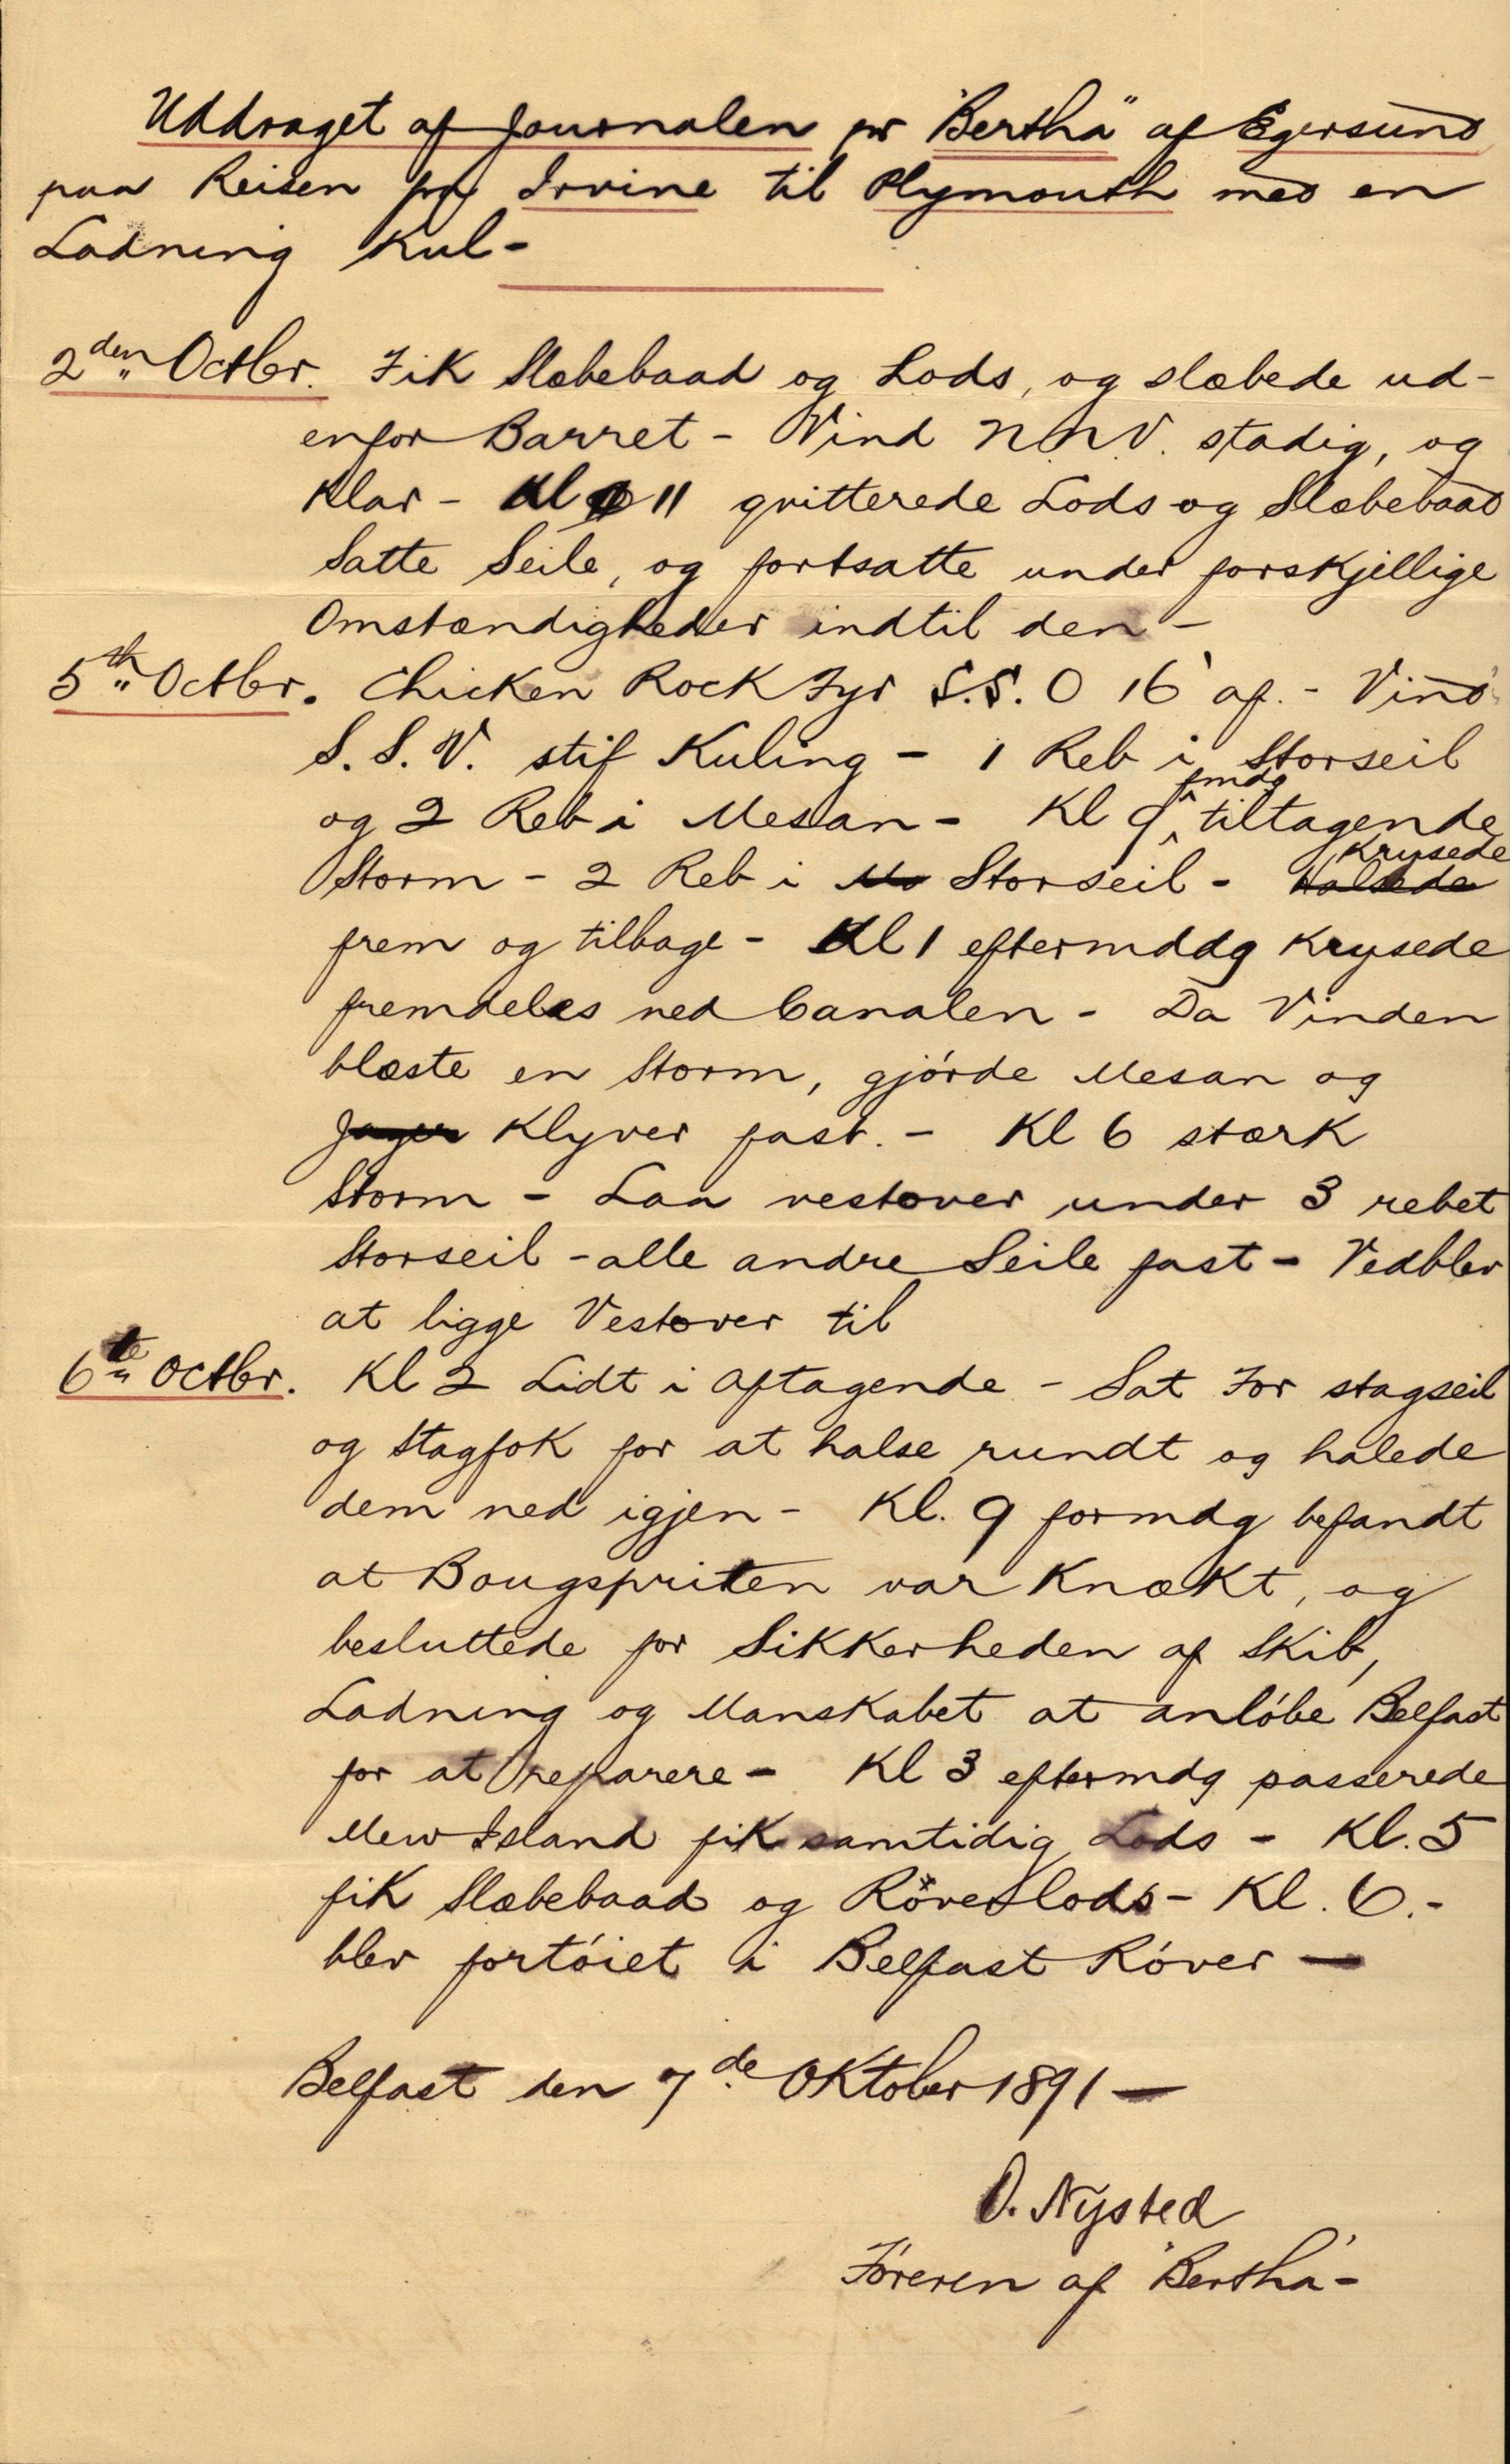 Uddraget af Journalen pr "Bertha" af Egersund
paa Reisen fra Irvine til Plymouth med en
Ladning Kul -
2den Octbr. Fik Slæbebaad og Lods, og slæbede ud-
enfor Barret - Vind N.N.V. stadig, og
Klar - Kl 11 qvitterede Lods og Slæbebaad
Satte Seile, og fortsatte under forskjellige
Omstændigheder indtil den -
5th Octbr. Chicken Rock Fyr S.S.O 16' af. - Vind
S.S.V. stif Kuling - 1 Reb i Storseil
og 2 Reb i Mesan - Kl 9 fmdg tiltagende
Storm - 2 Reb i Ms Storseil - Halsede Krysede
frem og tilbage - Kl 1 eftermddg Krysede
fremdeles ned Canalen - Da Vinden
blæste en Storm, gjórde Mesan og
Jager Klyver fast. - Kl 6 stærk
Storm - Laa vestover under 3 rebet
Storseil - alle andre Seile fast - Vedblev
at ligge Vestover til
6te Octbr. Kl 2 Lidt i aftagende - Sat For stagseil
og Stagfok for at halse rundt og halede
dem ned igjen - Kl. 9 formdg befandt
at Bougspriten var Knækt, og
besluttede for Sikkerheden af Skib,
Ladning og Manskabet at anlóbe Belfast
for at reparere - Kl 3 eftermdg passerede
Mew Island fik samtidig Lods - Kl. 5
fik Slæbebaad og Röverlods - Kl. 6. -
blev fortóiet i Belfast Róver —
Belfast den 7de Oktober 1891 —
O. Nysted
Fóreren af "Bertha" -